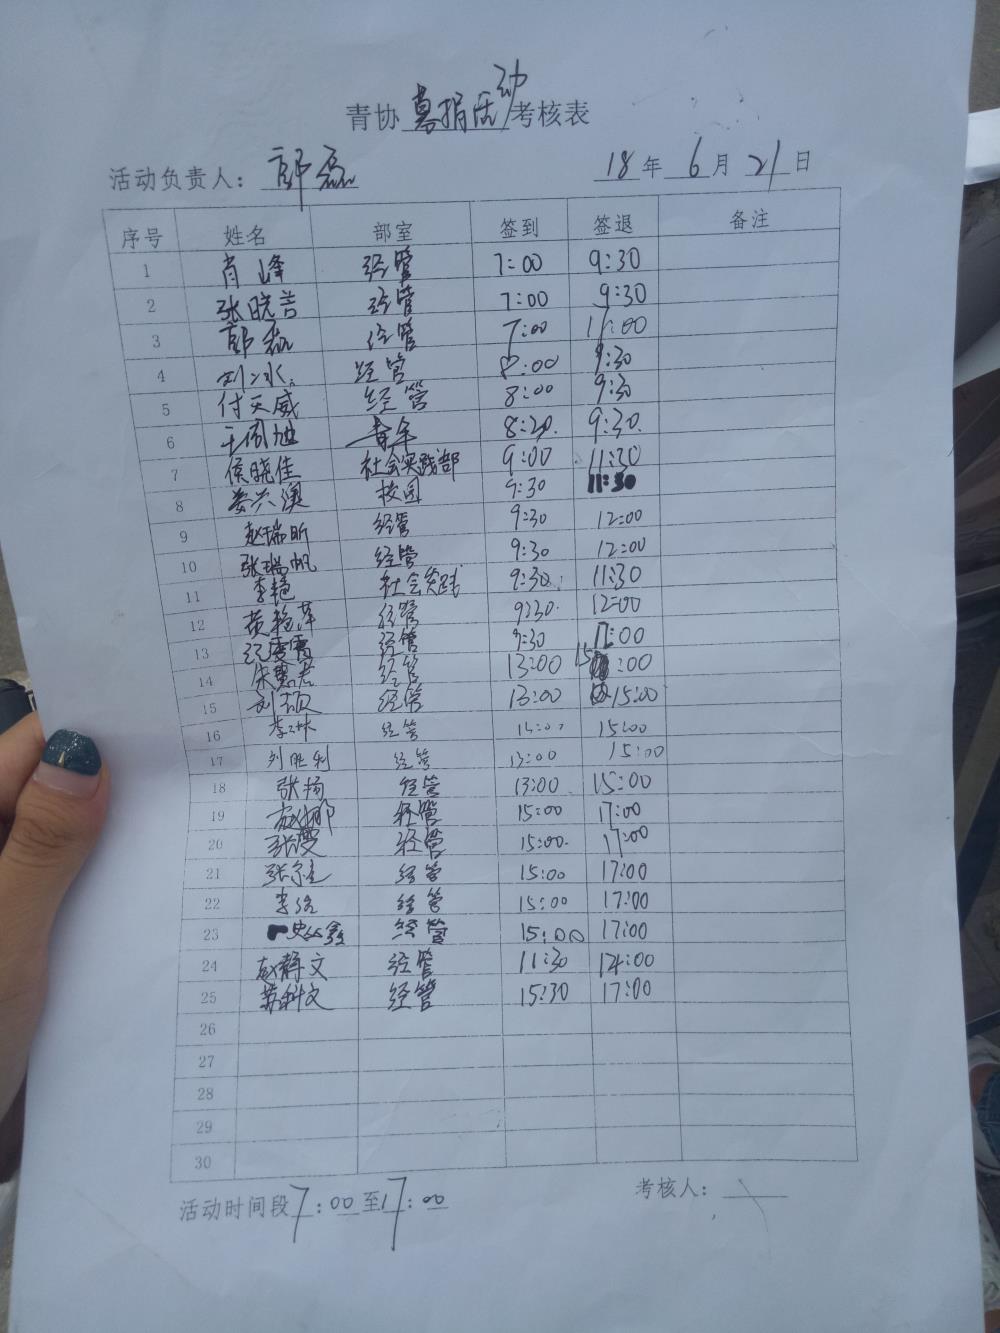 青协 募捐活动 考核表
活动负责人：郭磊 18年 6月 21日
序号 姓名 部室 签到 签退 备注
1 肖峰 经管 7:00 9:30
2 张晓吉 经管 7:00 9:30
3 郭磊 经管 7:00 11:00
4 刘冰 经管 8:00 9:30
5 付天威 经管 8:00 9:30
6 于佩旭 青年 8:20 9:30
7 侯晓佳 社会实践部 9:00 11:30
8 娄兴澳 校园 9:30 11:30
9 赵瑞昕 经管 9:30 12:00
10 张瑞帆 经管 9:30 12:00
11 李艳 社会实践 9:30 11:30
12 黄艳萍 经管 9:30 12:00
13 经管 9:30 12:00
14 宋慧君 经管 13:00 15:00
15 刘硕 经管 13:00 15:00
16 李琳 经管 13:00 15:00
17 刘胜利 经管 13:00 15:00
18 张扬 经管 13:00 15:00
19 赵娜 经管 15:00 17:00
20 张雯 经管 15:00 17:00
21 经管 15:00 17:00
22 李洛 经管 15:00 17:00
23 经管 15:00 17:00
24 赵静文 经管 11:30 14:00
25 苏科文 经管 15:30 17:00
26
27
28
29
30
活动时间段 7:00至17:00 考核人：